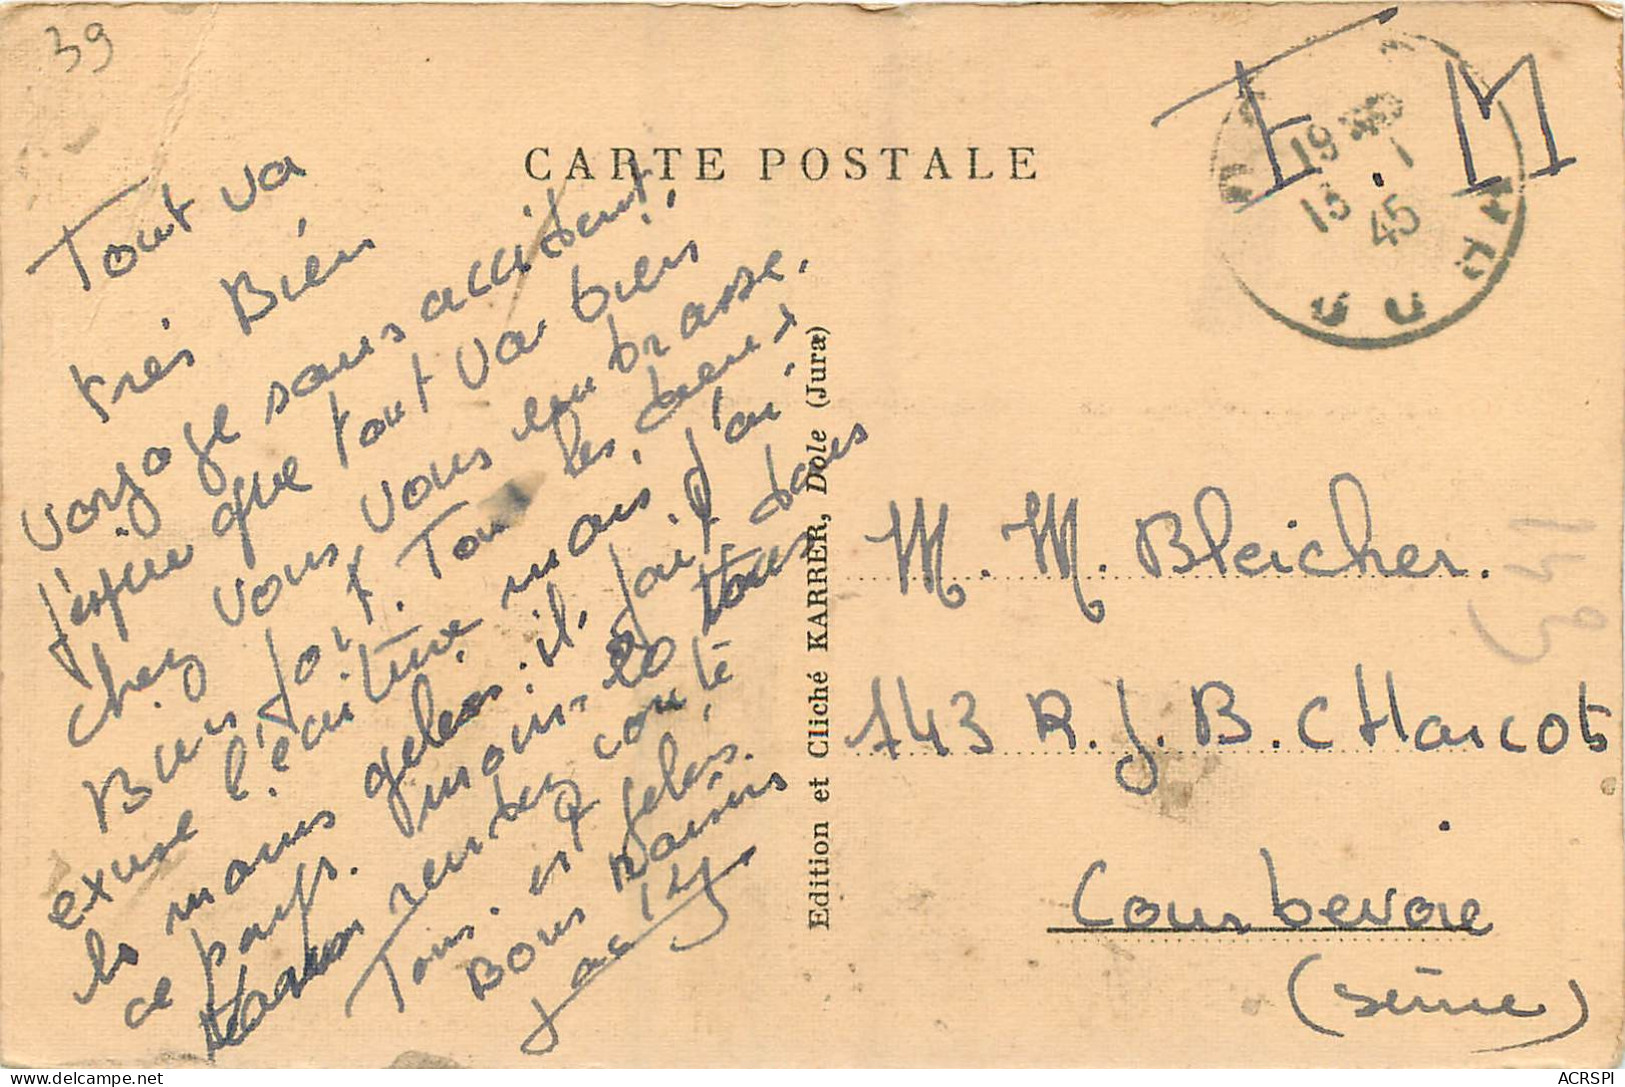 39
CARTE POSTALE
F. M
19
13 - 1
45
Tout va
très Bien
voyage sans accident.
J'espère que tout va bien
chez vous, vous embrasse.
Bien fort. Tous les deux
excuse l'écriture mais j'ai
les mains gelées. il fait dans
ce pays. moins 20 tous
rendez conte
Tous. est gelés.
Bons Baisers
Jacky
Edition et Cliché KARRER, Dole (Jura)
M. M. Bleicher.
143 R. J. B. CHarcots
Courbevoie
(Seine)
143
ACRSPI